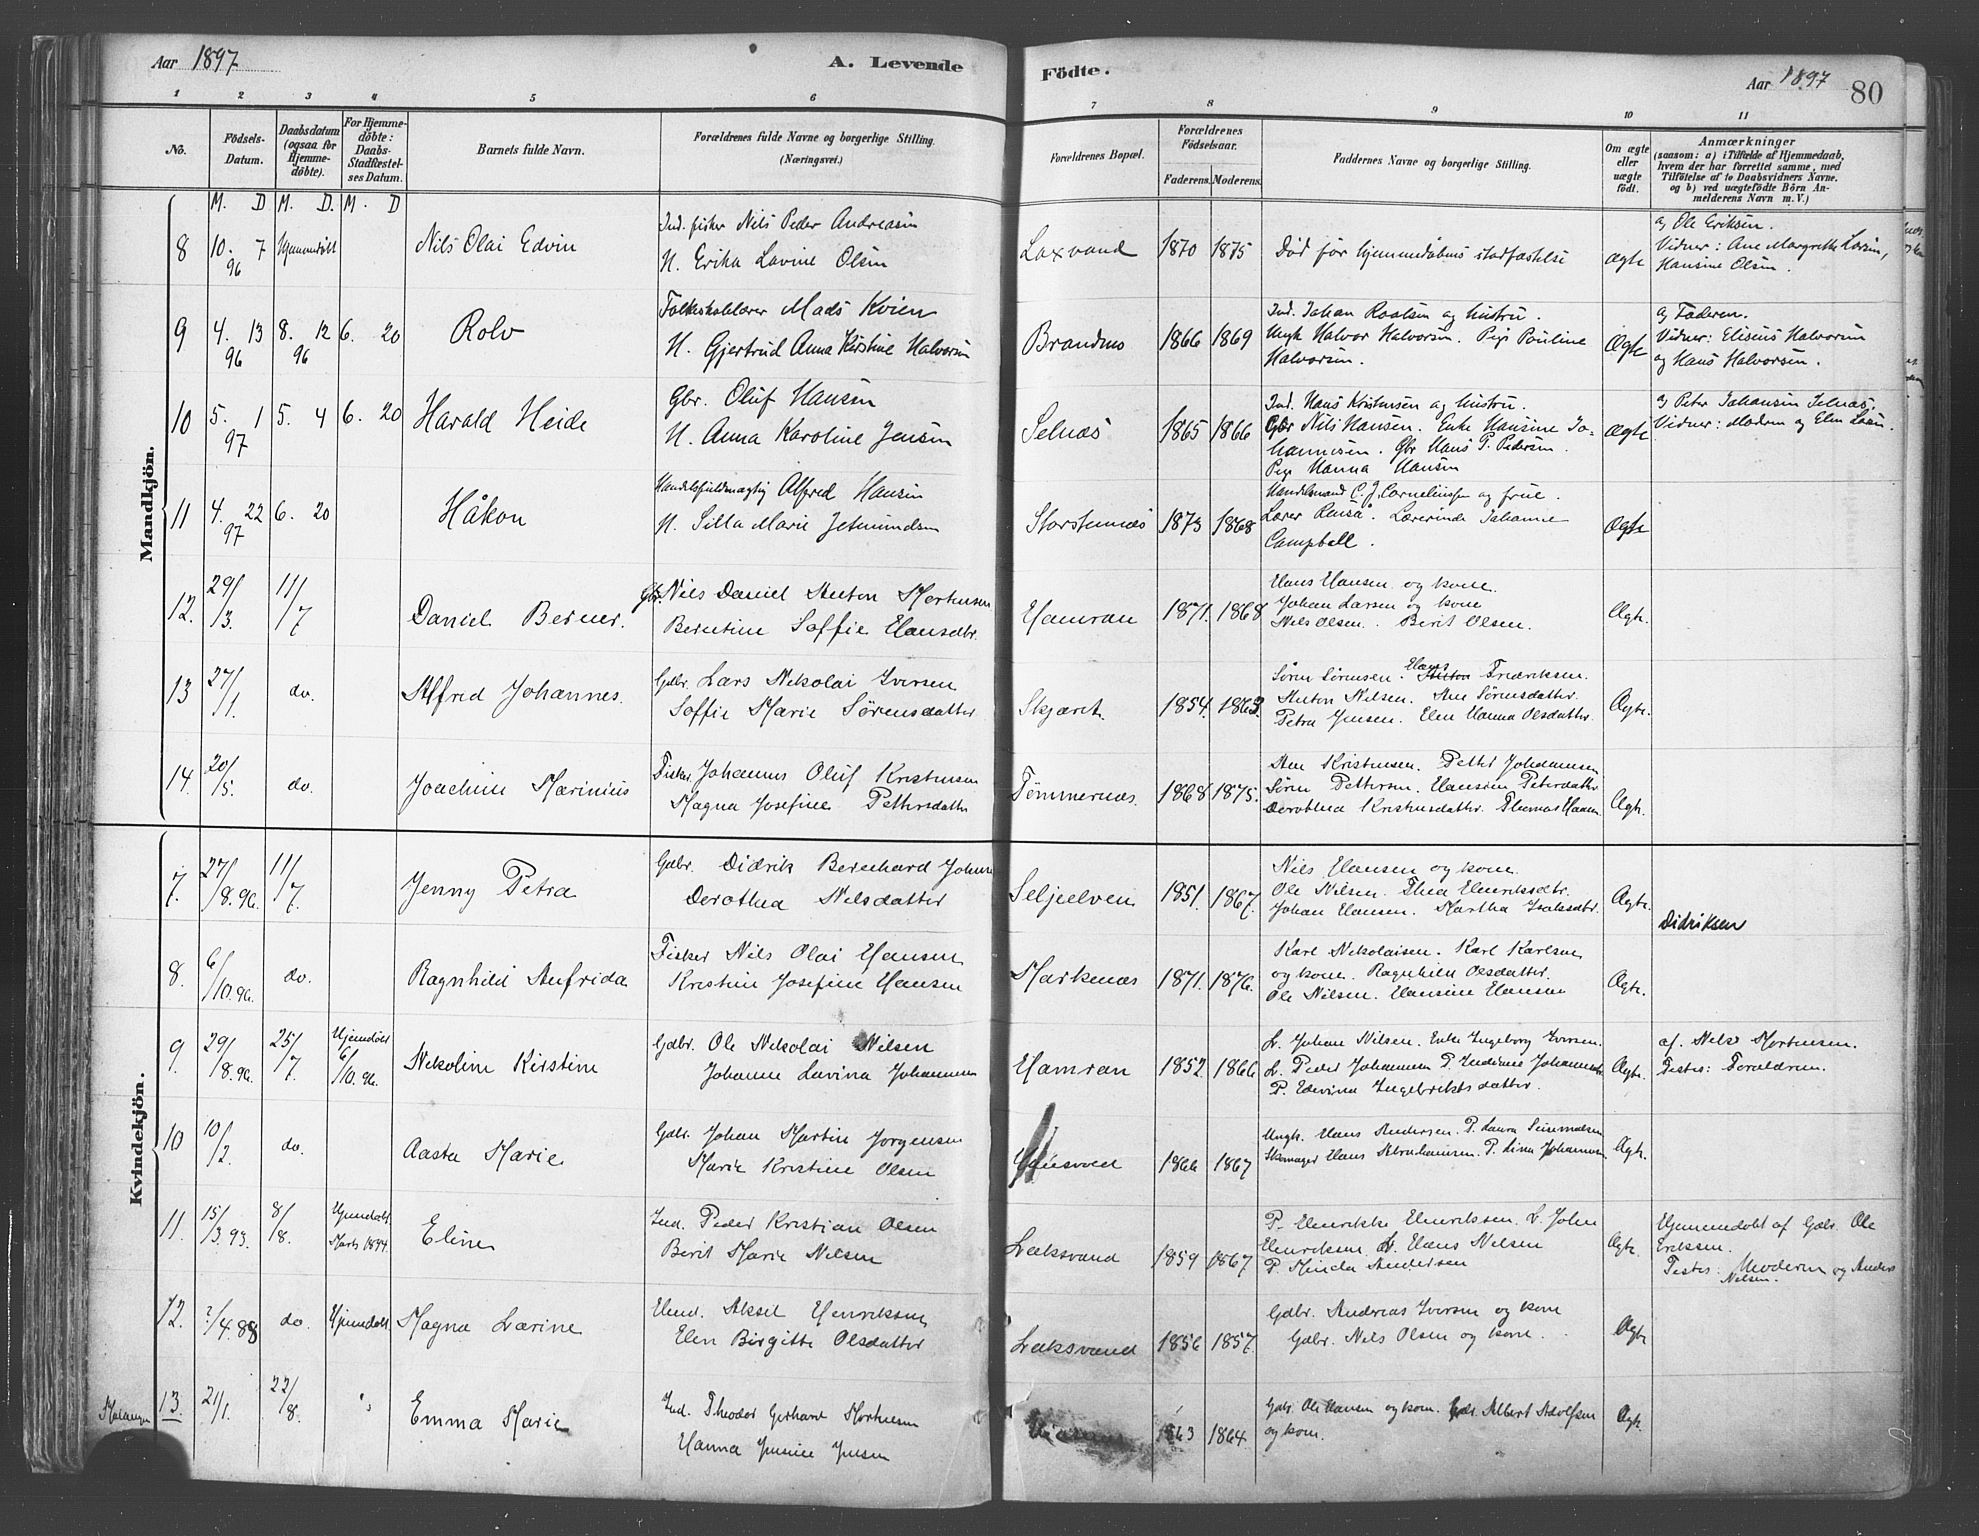 Aar 1897
A. Levende
Födte.
Aar 1897
80
1 2 3 4 5 6 7 8 9 10 11
No.
Födsels-
Datum.
Daabsdatum
(ogsaa for
Hjemme-
döbte).
For Hjemme-
döbte:
Daabs-
Stadfæstel-
ses Datum.
Barnets fulde Navn.
Forældrenes fulde Navne og borgerlige Stilling.
(Næringsvei.)
Forældrenes Bopæl.
Forældrenes
Födselsaar.
Faderens. Moderens.
Faddernes Navne og borgerlige Stilling.
Om ægte
eller
uægte
födt.
Anmærkninger
(saasom: a) i Tilfælde af Hjemmedaab,
hvem der har forrettet samme, med
Tilföielse af to Daabsvidners Navne,
og b) ved uægtefödte Börn An-
melderens Navn m. V.)
Mandkjön.
M. D M. D. M. D
8
10. 7
96
Hjemmedøbt
Nils Olai Edvin
Ind. fisker Nils Peder Andreasen
H. Erika Lavine Olsen
Laxvand
1870 1875
Død før hjemmedåbens stadfæstelse
ægte
a, Ole Eriksen.
Vidner: Ane Margrethe Larsen,
Hansine Olsen.
9
4. 13
96
8. 12
96
6. 20
Rolv
Folkeskolelærer Mads Kvien
H. Gjertrud Anna Kirstine Halvorsen
Brandnes
1866 1869
Ind. Johan Roalsen og hustru.
Ungk Halvor Halvorsen. Pige Pauline
Halvorsen.
Ægte
a, Faderen.
Vidner: Eliseus Halvorsen
og Hans Halvorsen.
10
5. 1
97
5. 4
6. 20
Harald Heide
Gbr. Oluf Hansen
H. Anna Karoline Jensen
Selnæs
1865 1866
Ind. Hans Kristensen og hustru.
Gbr Nils Hansen. Enke Hansine Jo-
hannesen. Gbr Hans P. Pedersen.
Pige Hanna Hansen
Ægte
a, Peter Johansen Selnæs.
Vidner: Modren og Elen
11
4. 22
97
6. 20
Håkon
Handelsfuldmægtig Alfred Hansen
H. Silla Marie Jetmundsen
Storstennæs
1873 1868
Handelsmand C. J. Corneliussen og frue.
Lærer Renså. Lærerinde Johanne
Campbell.
Ægte
12.
29/3.
11/7
Daniel Berner.
Gbr. Nils Daniel Anton Mortensen
Berntine Soffie Hansdtr.
Hamran
1871. 1868
Hans Hansen og kone.
Johan Larsen og kone
Nils Olsen. Berit Olsen.
Ægte.
13
27/1.
do.
Alfred Johannes.
Gdbr. Lars Nikolai Iversen
Soffie Marie Sørensdatter
Skjæret.
1854. 1863.
Søren Sørensen. Hans Fredriksen.
Anton Nilsen. Ane Sørensdatter.
Petra Jensen. Elen Hanna Olsdatter.
Ægte.
14.
20/5.
do.
Joachim Marinius
Fisker Johannes Oluf Kristensen
Magna Josefine Pettersdatter
Tømmernæs.
1868 1875.
Ane Kristensen. Petter Johannesen
Søren Pettersen. Hansine Petersdatter
Dorothea Kristensdatter. Thomas Hansen
Ægte.
Kvindekjön.
7.
27/8.96.
11/7.
Jenny Petra
Gdbr. Didrik Bernhard Johns
Dorothea Nilsdatter
Seljeelven
1851. 1867.
Nils Hansen og kone.
Ole Nilsen. Thea Henriksdtr.
Johan Hansen. Martha Isaksdtr.
Ægte.
Didriksen
8.
6/10.96.
do.
Ragnhild Anfrida
Fisker Nils Olai Hansen
Kristine Josefine Hansen
Markenæs
1871. 1876.
Karl Nikolaisen. Karl Karlsen
og kone. Ragnhild Olsdatter.
Ole Nilsen. Hansine Hansen
Ægte.
9.
29/8.96.
25/7.
Hjemdøbt
6/10.96.
Nikoline Kirstine
Gdbr. Ole Nikolai Nilsen
Johanne Lavina Johannesen
Hamran
1852 1866
L. Johan Nilsen. Enke Ingeborg Iversen.
L. Peder Johannesen P. Johannesdtr
P. Edevina Ingebrigtsdatter.
Ægte.
af. Nils Mortensen.
Testes: Forældrene.
10
10/2.
do.
Aasta Marie
Gdbr. Johan Martin Jørgensen
Marie Kristine Olsen
1866 1867
Ungk. Hans Andersen. P. Laura
Skomager Hans Abrahamsen. P. Lina Johannesen
Ægte.
11.
15/3.93.
8/8.
Hjemdøbt
Marts 1894.
Eline
Ind. Peder Kristian Olsen
Berit Marie Nilsen
Laksvand
1859 1867
P. Henrikke Henrikssen. L. John
Henriksen. L. Hans Nilsen
P. Minda Andersen
Ægte.
Hjemmedøbt af Gdbr. Ole
Eriksen.
Testes: Moderen og Anders
Nilsen.
12.
?/4.88
do.
Hjemdøbt
Magna Larine
Aksel Henriksen
Elen Birgitte Olsdatter
Laksvand
1856 1857.
Gdbr. Andreas Iversen og kone
Gdbr. Nils Olsen og kone.
Ægte
Malangen
13.
21/1.
22/8.
"
Emma Marie
Ind. Theodor Gerhard Mortensen
Hanna Jensine Jensen
1863 1864.
Gdbr. Ole Hansen og kone. Gdbr. Albert Adolfsen
og kone.
Ægte